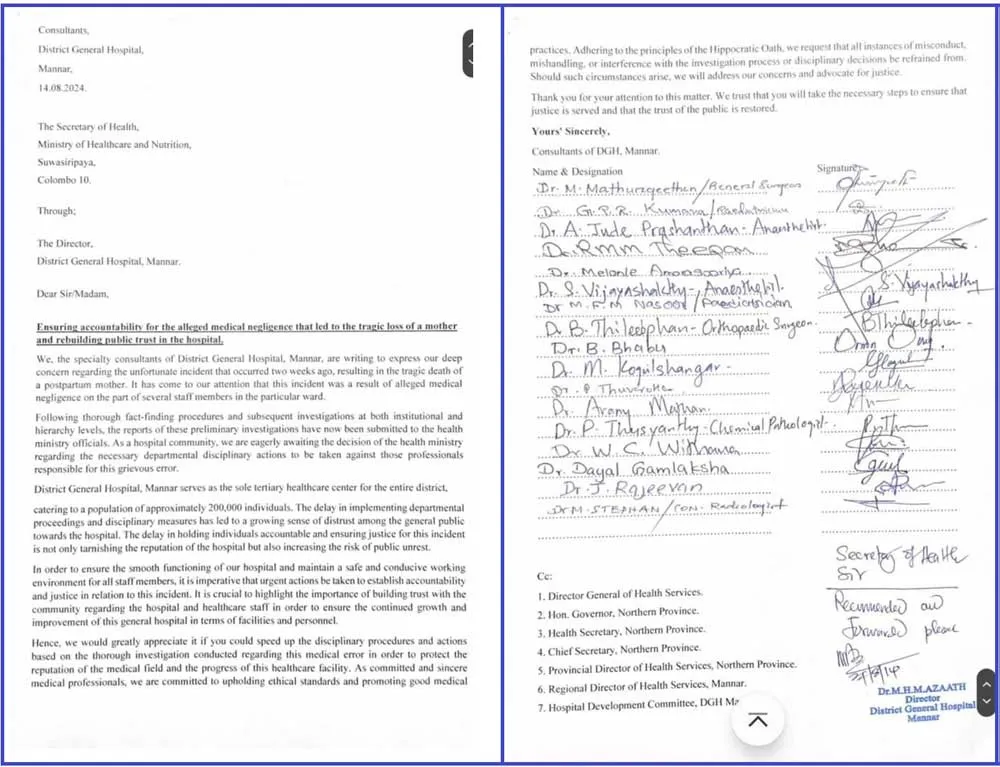 Consultants,
District General Hospital,
Mannar,
14.08.2024.
The Secretary of Health,
Ministry of Healthcare and Nutrition,
Suwasiripaya,
Colombo 10.
Through;
The Director,
District General Hospital, Mannar.
Dear Sir/Madam,
Ensuring accountability for the alleged medical negligence that led to the tragic loss of a mother
and rebuilding public trust in the hospital.
We, the specialty consultants of District General Hospital, Mannar, are writing to express our deep
concern regarding the unfortunate incident that occurred two weeks ago, resulting in the tragic death
of a postpartum mother. It has come to our attention that this incident was a result of alleged medical
negligence on the part of several staff members in the particular ward.
Following thorough fact-finding procedures and subsequent investigations at both institutional and
hierarchy levels, the reports of these preliminary investigations have now been submitted to the health
ministry officials. As a hospital community, we are eagerly awaiting the decision of the health ministry
regarding the necessary departmental disciplinary actions to be taken against those professionals
responsible for this grievous error.
District General Hospital, Mannar serves as the sole tertiary healthcare center for the entire district,
catering to a population of approximately 200,000 individuals. The delay in implementing departmental
proceedings and disciplinary measures has led to a growing sense of distrust among the general public
towards the hospital. The delay in holding individuals accountable and ensuring justice for this incident
is not only tarnishing the reputation of the hospital but also increasing the risk of public unrest.
In order to ensure the smooth functioning of our hospital and maintain a safe and conducive working
environment for all staff members, it is imperative that urgent actions be taken to establish accountability
and justice in relation to this incident. It is crucial to highlight the importance of building trust with the
community regarding the hospital and healthcare staff in order to ensure the continued growth and
improvement of this general hospital in terms of facilities and personnel.
Hence, we would greatly appreciate it if you could speed up the disciplinary procedures and actions
based on the thorough investigation conducted regarding this medical error in order to protect the
reputation of the medical field and the progress of this healthcare facility. As committed and sincere
medical professionals, we are committed to upholding ethical standards and promoting good medical
practices. Adhering to the principles of the Hippocratic Oath, we request that all instances of misconduct,
mishandling, or interference with the investigation process or disciplinary decisions be refrained from.
Should such circumstances arise, we will address our concerns and advocate for justice.
Thank you for your attention to this matter. We trust that you will take the necessary steps to ensure that
justice is served and that the trust of the public is restored.
Yours' Sincerely,
Consultants of DGH, Mannar.
Name & Designation Signature
Dr. M. Mathurageethen/General Surgeon
Dr. G.P.R. Kumara/Paediatrician
Dr. A. Jude Prashanthan - Anesthetist.
Dr RMM Theepan
Dr. Melonie
Dr. S. Vijayashakthy -, Anaesthetist. S. Vijayashakthy
Dr M.F.M Nasoor/ Paediatrician
Dr B. Thileephan - Orthopaedic Surgeon. B Thileephan
Dr. B. Bhabu
Dr. M. Kogulshangar -
Dr.
Dr. Arany
Dr. P. Thusyanthy - Chemical Pathologist.
Dr. W. C.
Dr. Dayal Gamlaksha
Dr. J. Rajeevan
Dr M. STEPHAN /CON. Radiologist
Secretary of Health
Sir
Recommended and
Forwarded please
Cc:
1. Director General of Health Services.
2. Hon. Governor, Northern Province.
3. Health Secretary, Northern Province.
4. Chief Secretary, Northern Province.
5. Provincial Director of Health Services, Northern Province.
6. Regional Director of Health Services, Mannar.
7. Hospital Development Committee, DGH
Dr.M.H.M.AZAATH
Director
District General Hospital
Mannar